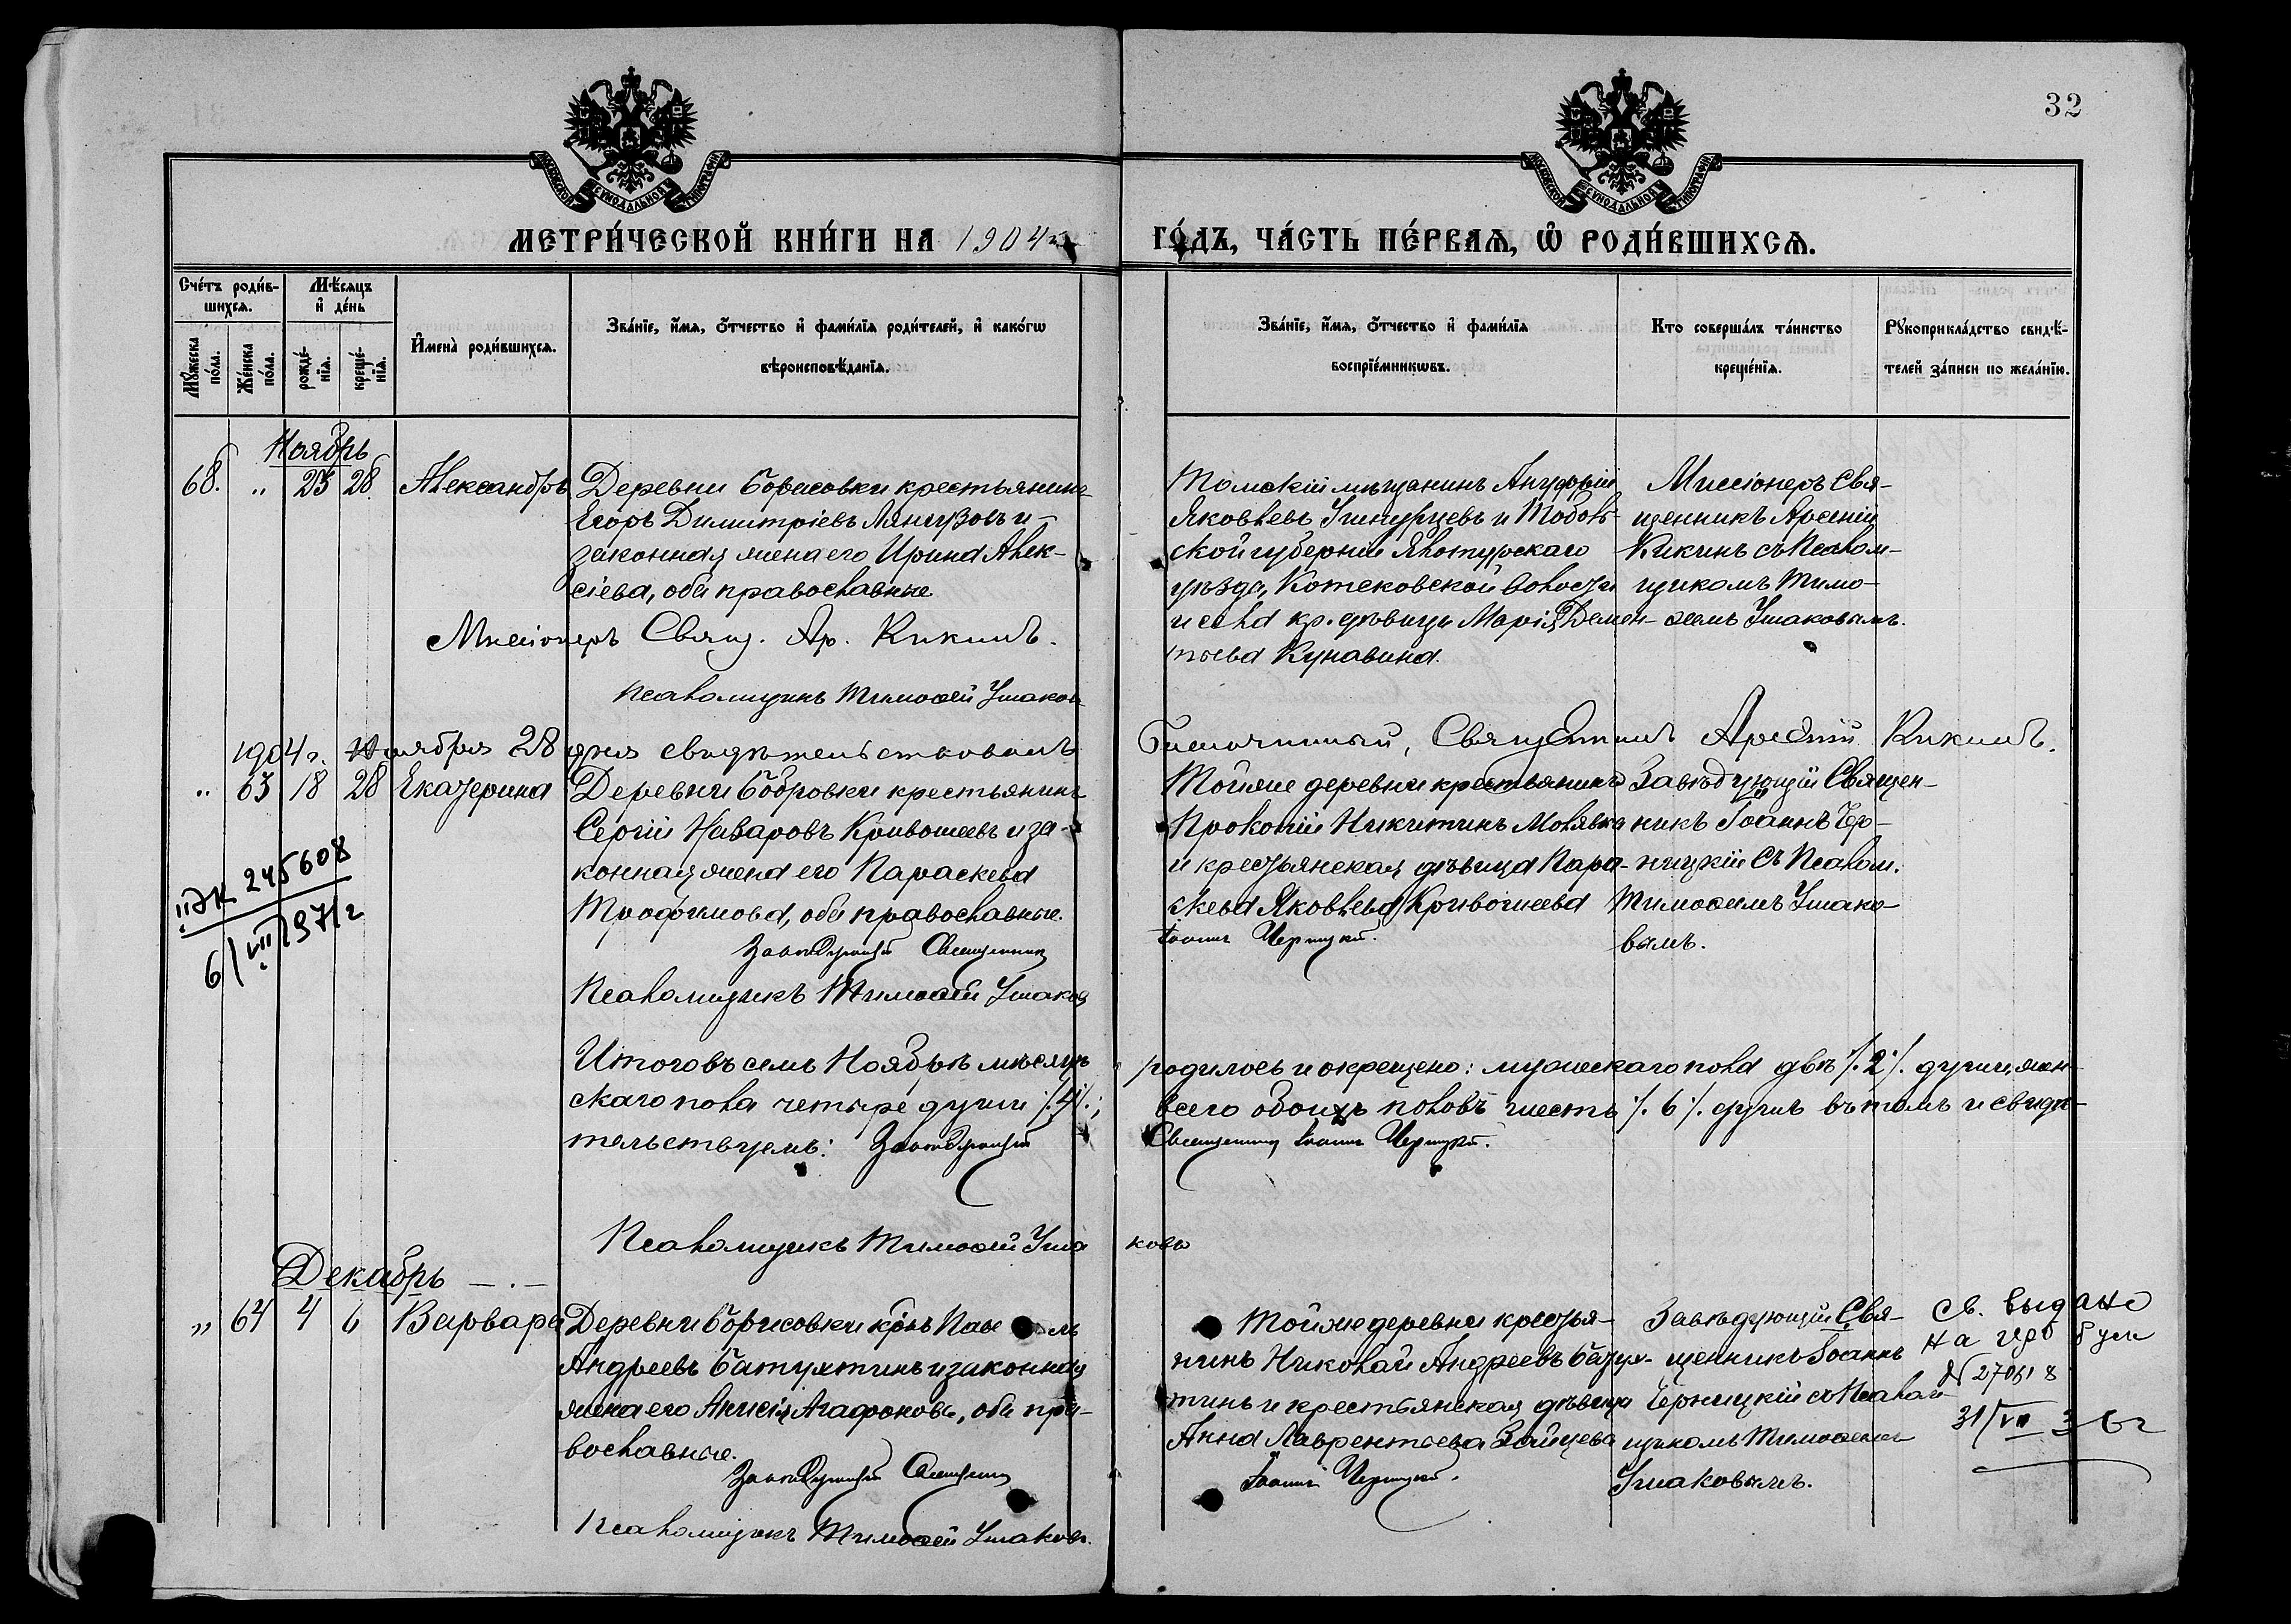 32
МОСКОВСКОЙ СѴНОДАЛЬНОЙ ТИПОГРАФІИ
МОСКОВСКОЙ СѴНОДАЛЬНОЙ ТИПОГРАФІИ
МЕТРИ́ЧЕСКОЙ КНИ́ГИ НА 1904 г.
ГО́ДЪ, ЧА́СТЬ ПЕ́РВАѦ, Ѡ҆ РОДИ́ВШИХСѦ.
Сче́тъ роди́в-
шихсѧ.
Мѣ́сяцъ
и҆ де́нь
Мꙋ́жеска
по́ла.
Же́нска
по́ла.
рожде́-
нїѧ.
креще́-
нїѧ.
И҆мена̀ роди́вшихсѧ.
Зва́нїе, и҆́мѧ, ѻ҆́тчество и҆ фами́лїѧ роди́телей, и҆ како́гѡ
вѣроисповѣ́данїѧ.
Зва́нїе, и҆́мѧ, ѻ҆́тчество и҆ фами́лїѧ
воспрїе́мникѡвъ.
Кто соверша́лъ та́инство
креще́нїѧ.
Рꙋкоприкла́дство свидѣ́-
телей за́писи по жела́нїю.
Ноябрь
68. " 25 28 Александръ
Деревни Борисовки крестьянинъ
Егоръ Димитріевъ и
законная жена его Ирина Алек-
сіева, оба православные
Миссіонеръ Свящ. Ар. Кикинъ.
Псаломщикъ Тимоѳей Ушаковъ
Томскій мѣщанинъ Ануфрій
Яковлевъ и Тоболь-
ской губерніи Ялотурскаго
уѣзда, Котековской волости
и села кр. дѣвица Марія Демен-
тьева Кунавина.
Миссіонеръ Свя-
щенникъ Арсеній
Кикинъ съ Псалом-
щикомъ Тимо-
ѳеемъ Ушаковымъ.
1904 г. ноября 28 дня свидѣтельствовалъ Благочинный, Священникъ Арсеній Кикинъ.
" 63 18 28 Екатерина
Деревни Бобровки крестьянинъ
Сергій Назаровъ Кривошеевъ и за-
конная жена его Параскева
Трофимова, оба православные.
Завѣдующій Священникъ
Іоаннъ Черницкій.
Псаломщикъ Тимоѳей Ушаковъ
Той же деревни крестьянинъ
Прокопій Никитинъ Молявка
и крестьянская дѣвица Пара-
скева Яковлева Кривошеева
Завѣдующій Священ-
никъ Іоаннъ Чер-
ницкій съ Псалом.
Тимоѳеемъ Ушако-
вымъ.
II ЭК 245608
6/VII 1971 г
Итого въ семъ Ноябрѣ мѣсяцѣ родилось и окрещено: мужескаго пола двѣ ./. 2 ./. души, жен-
скаго пола четыре души ./. 4 ./.; всего обоихъ половъ шесть ./. 6 ./. душъ въ томъ и свидѣ-
тельствуемъ: Завѣдующій Священникъ Іоаннъ Черницкій.
Псаломщикъ Тимоѳей Ушаковъ
Декабрь
" 64 4 6 Варвара
Деревни Борисовки крнъ
Андреевъ Батухтинъ и законная
жена его Анисія Агафонова, оба пра-
вославные.
Завѣдующій Священникъ
Іоаннъ Черницкій.
Псаломщикъ Тимоѳей Ушаковъ.
Той же деревни крестья-
нинъ Николай Андреевъ Батух-
тинъ и крестьянская дѣвица
Анна Лаврентьева Зайцева
Завѣдующій Свя-
щенникъ Іоаннъ
Черницкій съ Псалом-
щикомъ Тимоѳеемъ
Ушаковымъ.
Св. выдано
на герб бум
31/VII 36 г